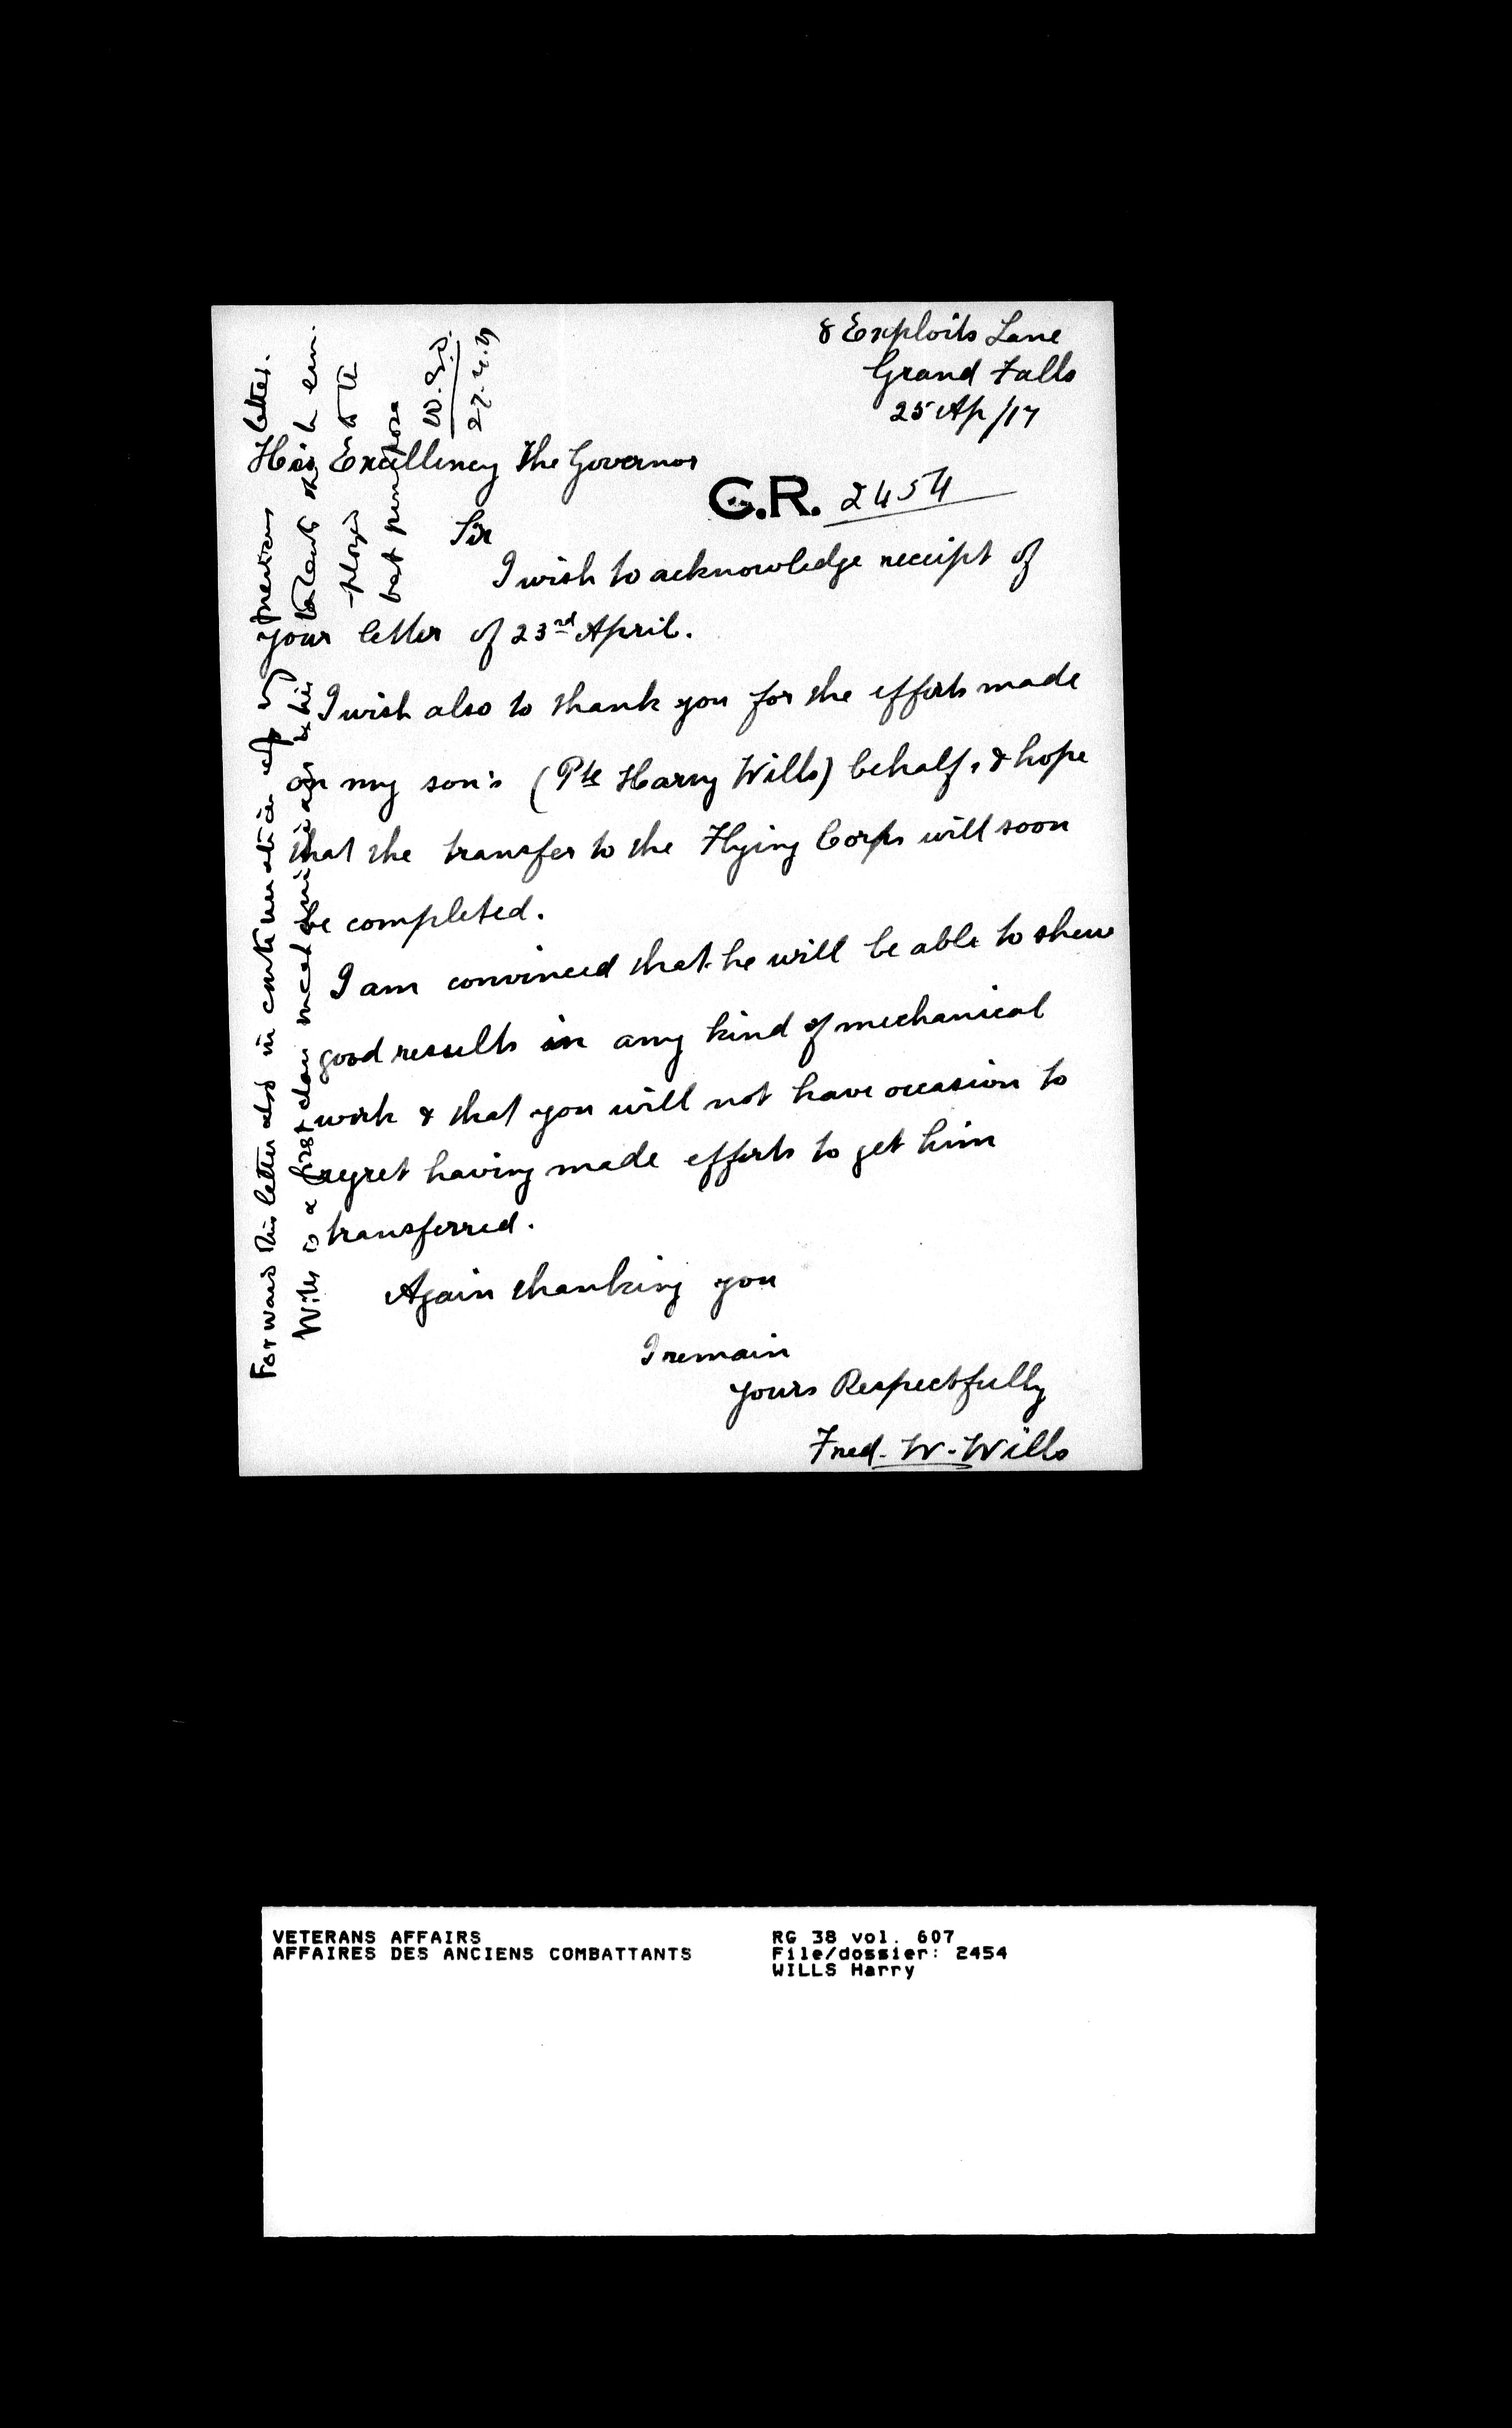 8 Exploits Lane
Grand Falls
25 Ap/17
His Excellency the Governor
G.R. 2454
Sir
I wish to acknowledge receipt of
your letter of 23rd April.
I wish also to thank you for the efforts made
on my son's (Pte Harry Wills) behalf, & hope
that the transfer to the Flying Corps will soon
be completed.
I am convinced that he will be able to shew
good results in any kind of mechanical
work & that you will not have occasion to
regret having made efforts to get him
transferred.
Again thanking you
I remain
Yours Respectfully
Fred. W. Wills
Forward this letter also in continuation of my previous letter.
Wills is a first class mechanician & his talents sh'd be em-
-ployed to the
best purpose
27.4.17
VETERANS AFFAIRS
AFFAIRES DES ANCIENS COMBATTANTS
RG 38 vol. 607
File/dossier: 2454
WILLS Harry